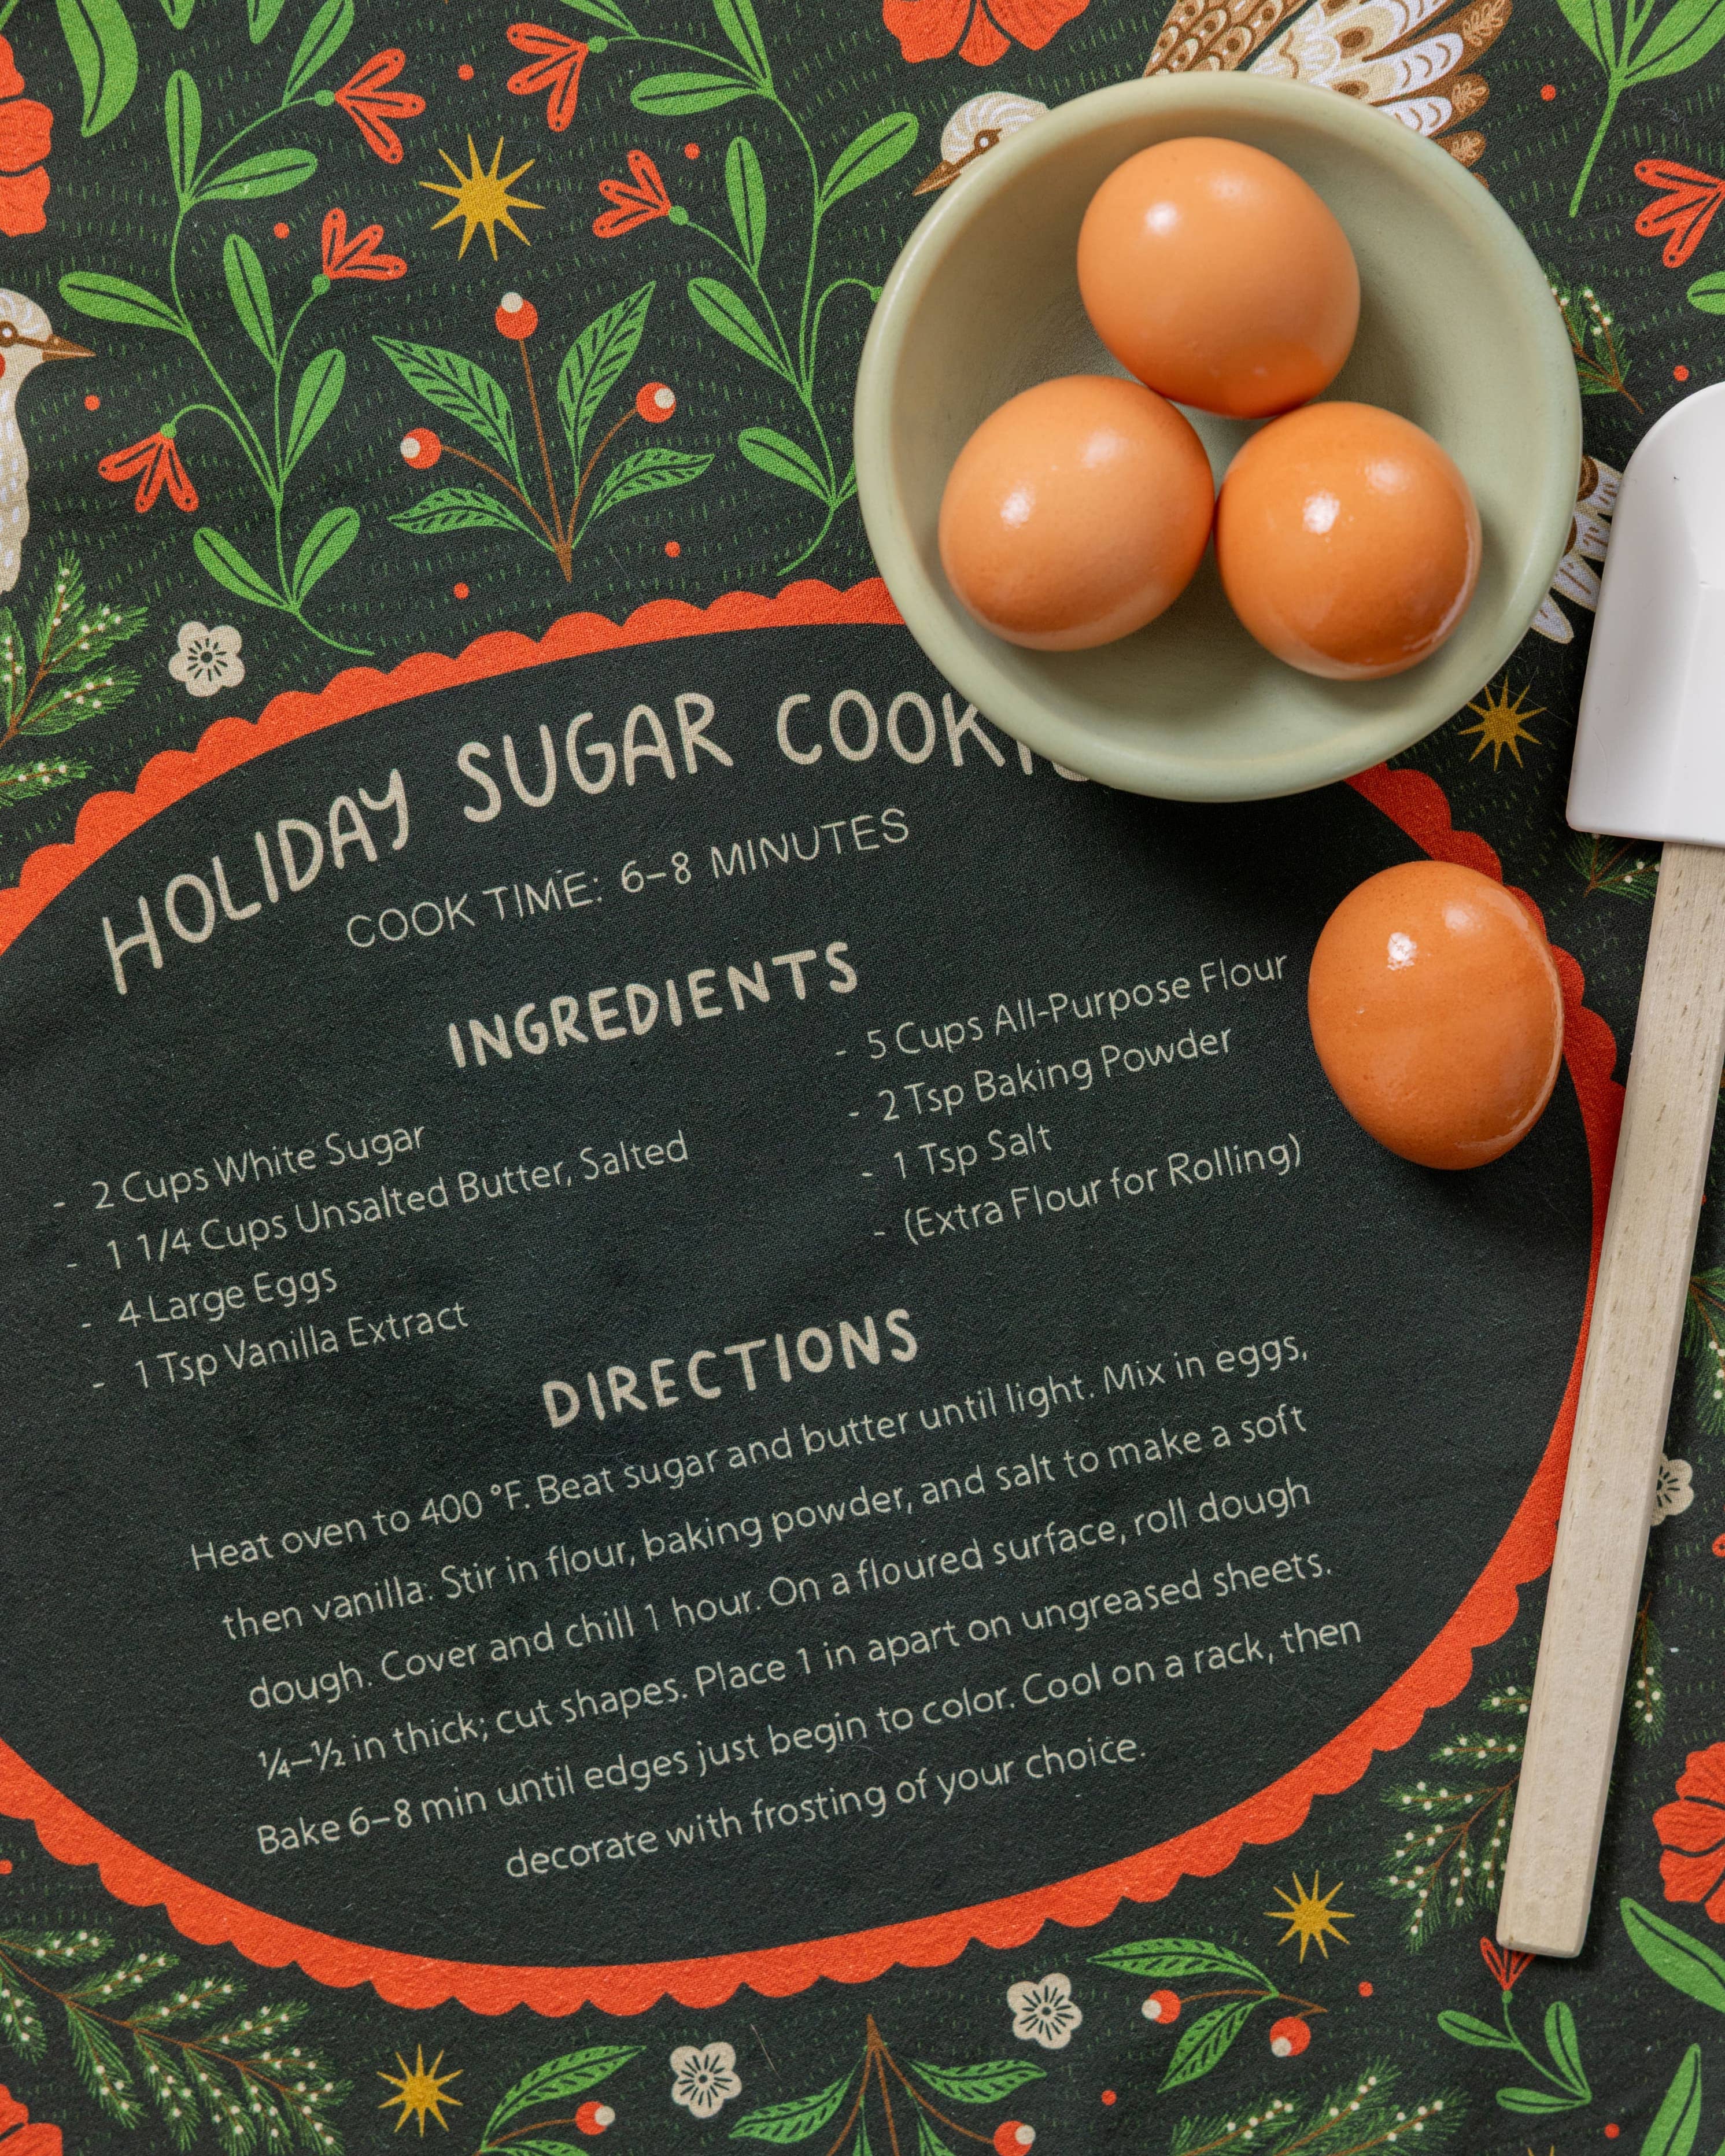 HOLIDAY SUGAR
COOK TIME: 6–8 MINUTES
INGREDIENTS
- 2 Cups White Sugar
- 1 1/4 Cups Unsalted Butter, Salted
- 4 Large Eggs
- 1 Tsp Vanilla Extract
- 5 Cups All-Purpose Flour
- 2 Tsp Baking Powder
- 1 Tsp Salt
- (Extra Flour for Rolling)
DIRECTIONS
Heat oven to 400 °F. Beat sugar and butter until light. Mix in eggs,
then vanilla. Stir in flour, baking powder, and salt to make a soft
dough. Cover and chill 1 hour. On a floured surface, roll dough
¼–½ in thick; cut shapes. Place 1 in apart on ungreased sheets.
Bake 6–8 min until edges just begin to color. Cool on a rack, then
decorate with frosting of your choice.